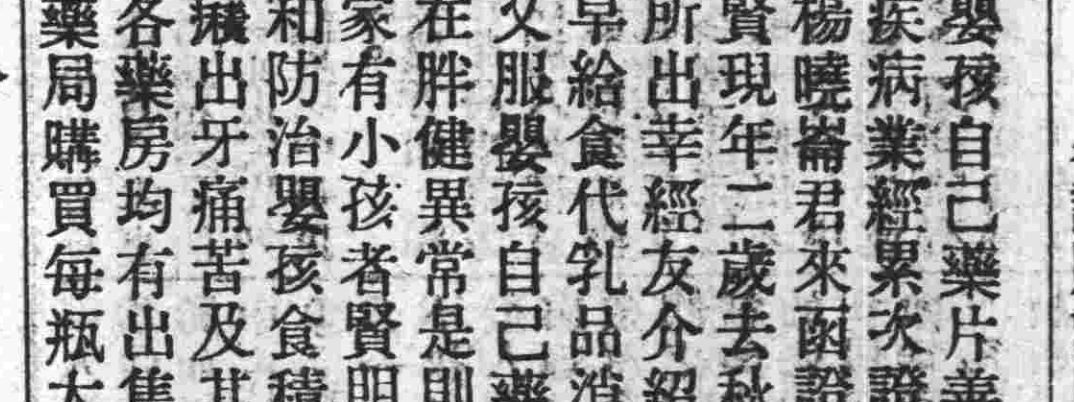 嬰孩自己藥片善
疾病業經累次證
楊曉崙君來函證
賢現年二歲去秋
所出幸經友介紹
早給食代乳品消
又服嬰孩自己藥
在胖健異常是則
家有小孩者賢明
和防治嬰孩食積
出牙痛苦及其
各藥房均有出售
藥局購買每瓶大